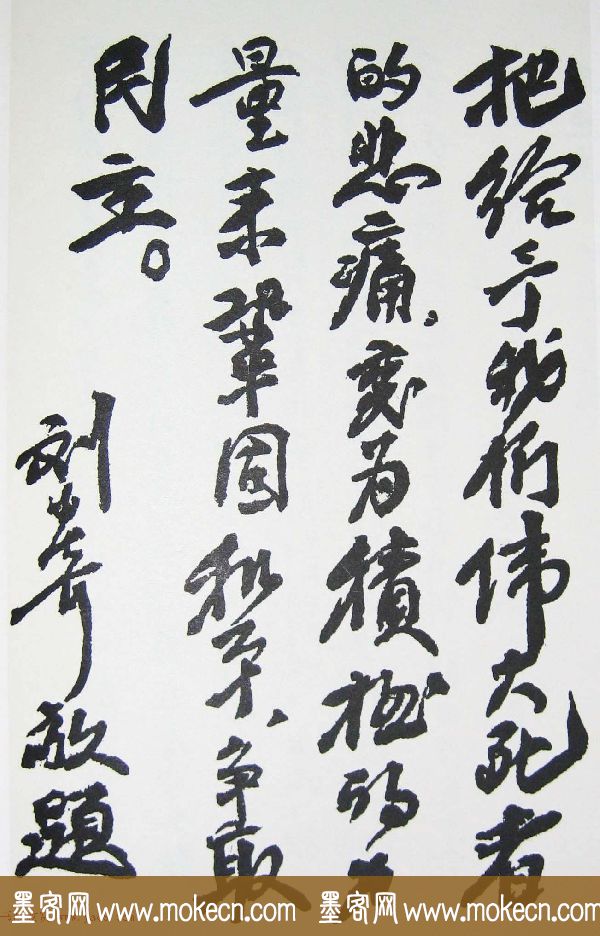 把给予我们伟大死者
的悲痛，变为積極的力
量来鞏固和平、争取
民主。
刘少奇敬題
墨客网 www.mokecn.com 墨客网 www.mokecn.com